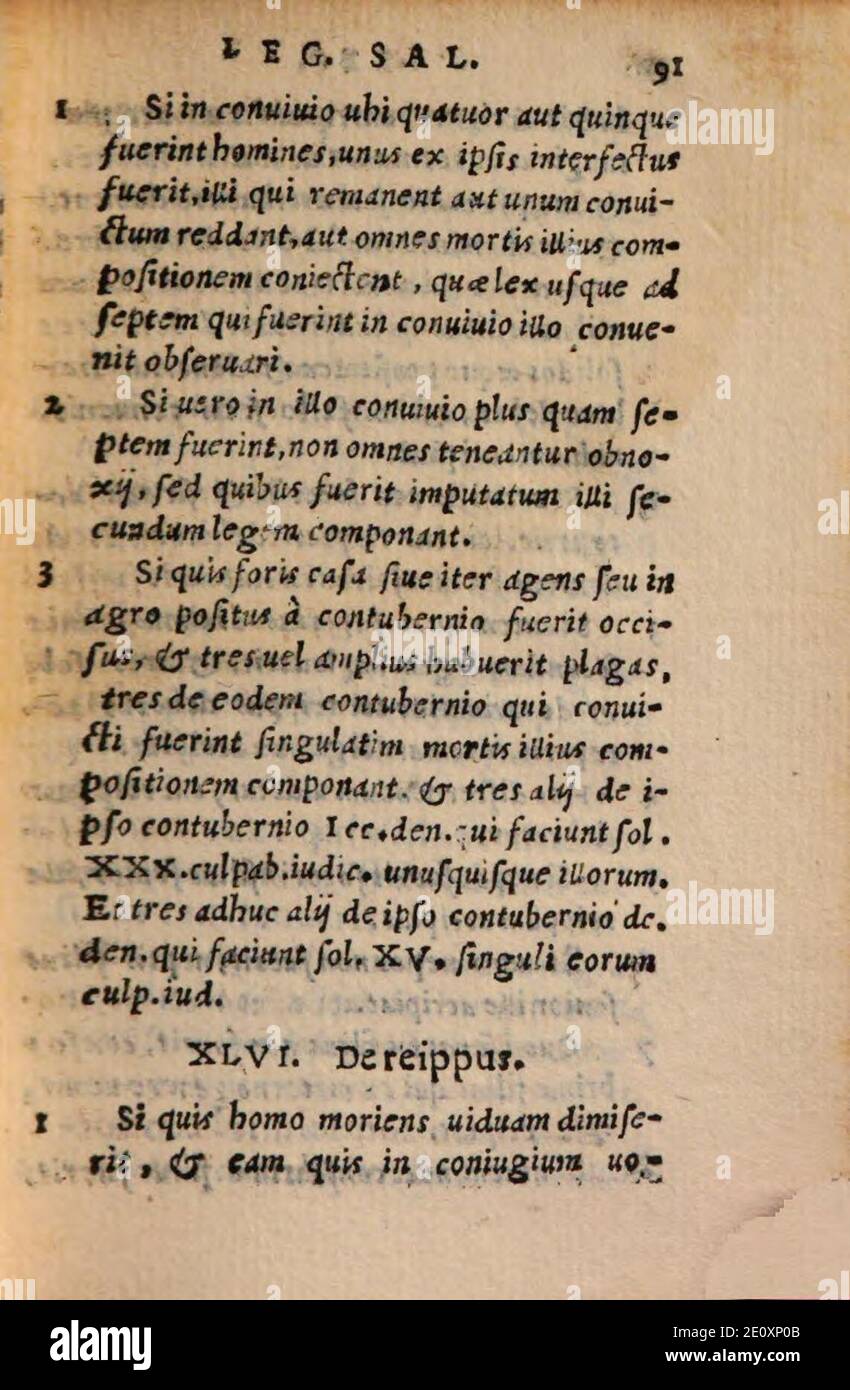 LEG. SAL. 91
1 Si in conuiuio ubi quatuor aut quinque
fuerint homines, unus ex ipſis interfectus
fuerit, illi qui remanent aut unum conui-
ctum reddant, aut omnes mortis illius com-
poſitionem coniectent, quæ lex uſque ad
ſeptem qui fuerint in conuiuio illo conue-
nit obſeruari.
2 Si uero in illo conuiuio plus quam ſe-
ptem fuerint, non omnes teneantur obno-
xij, ſed quibus fuerit imputatum illi ſe-
cundum legem componant.
3 Si quis foris caſa ſiue iter agens ſeu in
agro poſitus à contubernio fuerit occi-
ſus, & tres uel amplius habuerit plagas,
tres de eodem contubernio qui conui-
cti fuerint ſingulatim mortis illius com-
poſitionem componant. & tres alij de i-
pſo contubernio I cc. den. qui faciunt ſol.
XXX. culpab. iudic. unuſquiſque illorum.
Et tres adhuc alij de ipſo contubernio dc.
den. qui faciunt ſol. XV. ſinguli eorum
culp. iud.
XLVI. De reippus.
1 Si quis homo moriens uiduam dimiſe-
rit, & eam quis in coniugium uo-
alamy
a
alamy
Image ID: 2E0XP0B
www.alamy.com